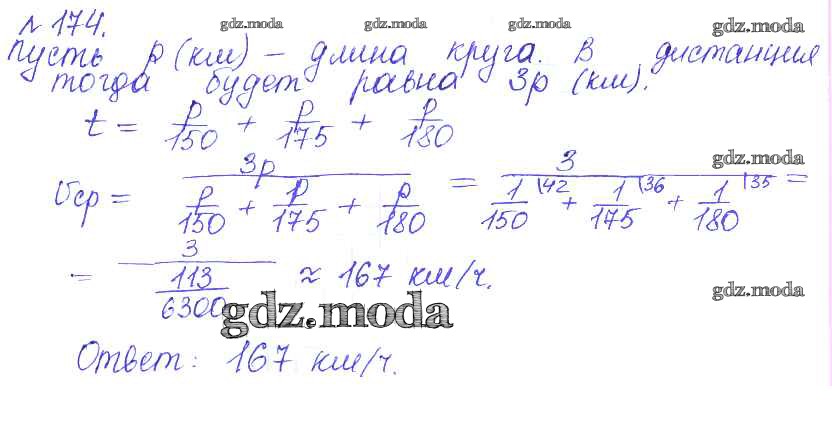 № 174. gdz.moda gdz.moda gdz.moda
Пусть p (км) – длина круга. В дистанция
тогда будет равна 3p (км).
t = p/150 + p/175 + p/180
gdz.moda
υср = 3p/(p/150 + p/175 + p/180) = 3/(1/150 \42 + 1/175 \36 + 1/180 \35) =
= 3/(113/6300) ≈ 167 км/ч.
gdz.moda gdz.moda
Ответ: 167 км/ч.